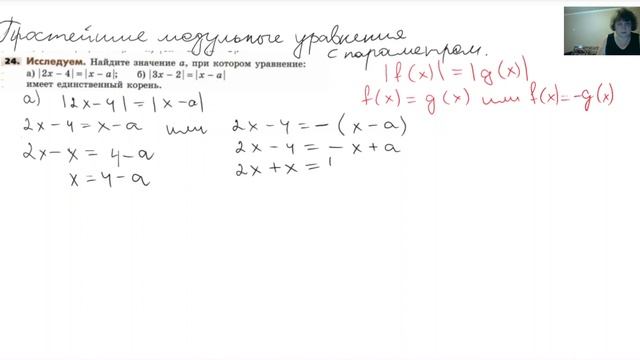 Простейшие модульные уравнения
с параметром.
24. Исследуем. Найдите значение a, при котором уравнение:
а) |2x − 4| = |x − a|; б) |3x − 2| = |x − a|
имеет единственный корень.
|f(x)| = |g(x)|
f(x) = g(x) или f(x) = -g(x)
а) |2x-4| = |x-a|
2x-4 = x-a или 2x-4 = -(x-a)
2x-x = 4-a 2x-4 = -x+a
x = 4-a 2x+x =